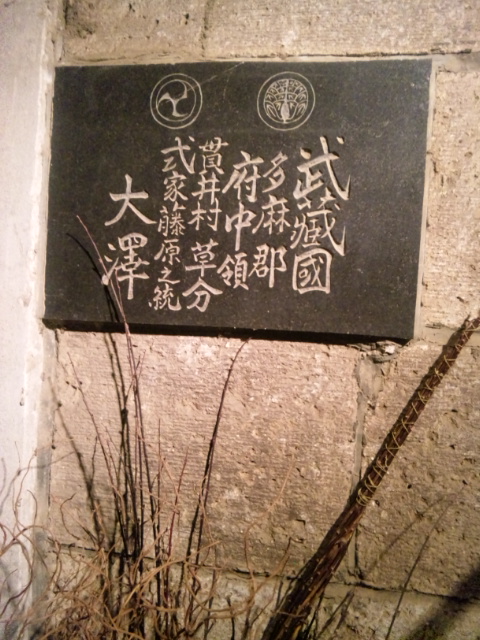 武藏國
多麻郡
府中領
貫井村 草分
式家藤原之統
大澤